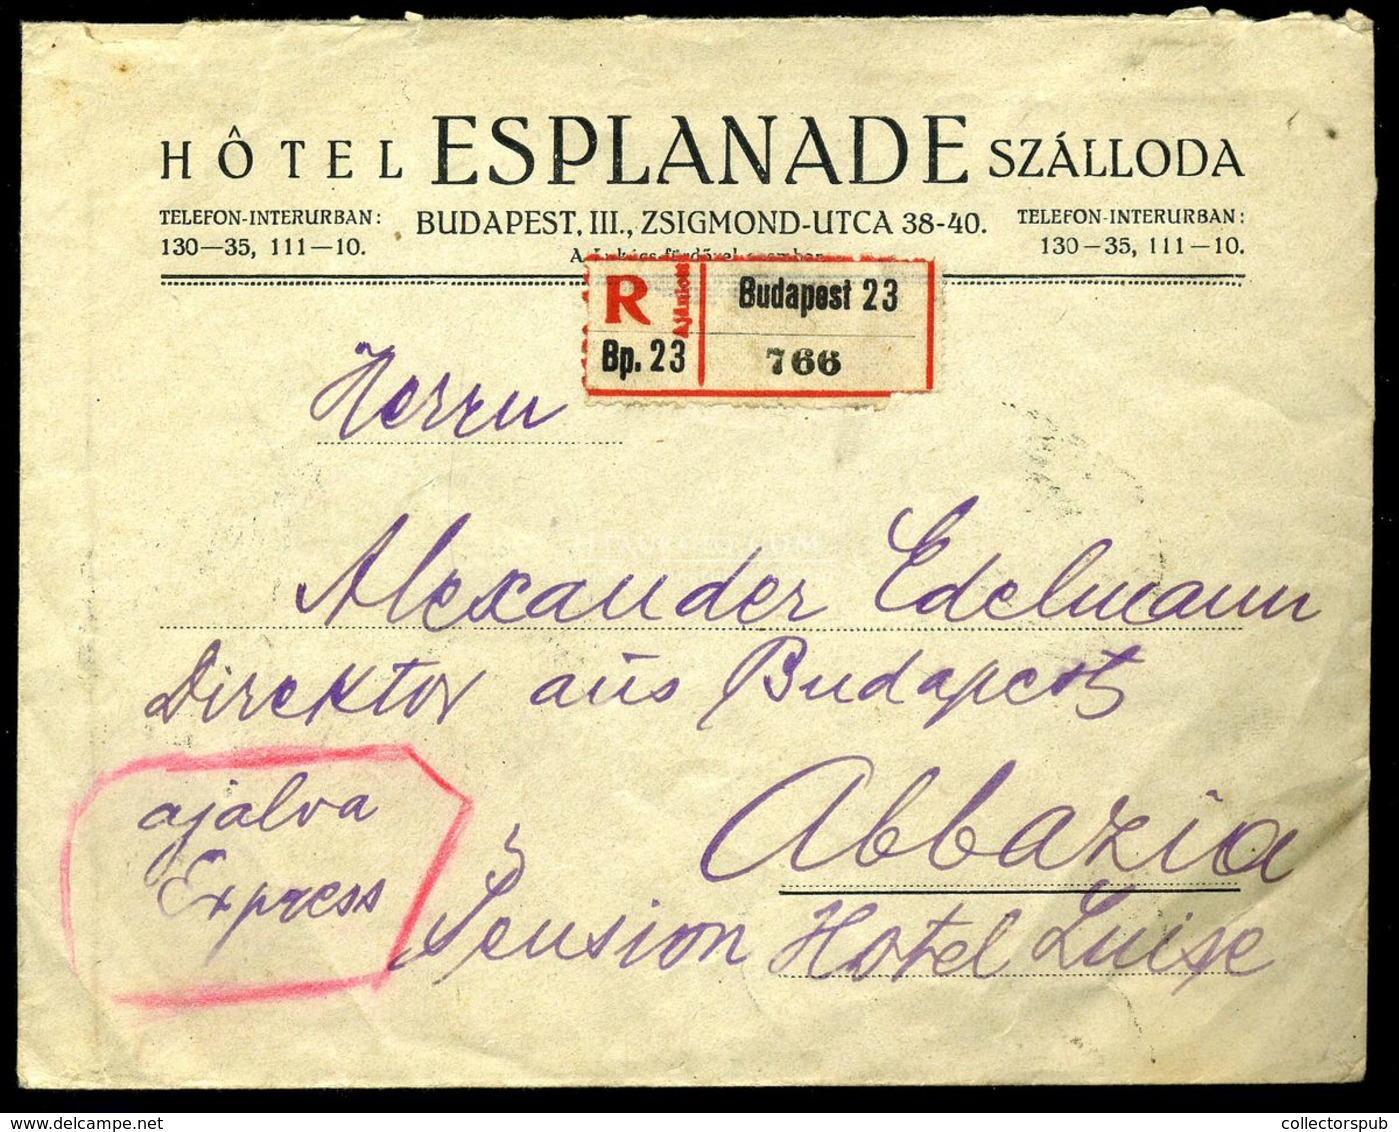 HÔTEL ESPLANADE SZÁLLODA
TELEFON-INTERURBAN:
130—35, 111—10.
BUDAPEST, III., ZSIGMOND-UTCA 38-40.
TELEFON-INTERURBAN:
130—35, 111—10.
R Ajánlott
Bp. 23
Budapest 23
766
Herrn
Alexander Edelmann
Direktor aus Budapest
ajalva
Express
Abbazia
Pension Hotel Luise
collectorspub